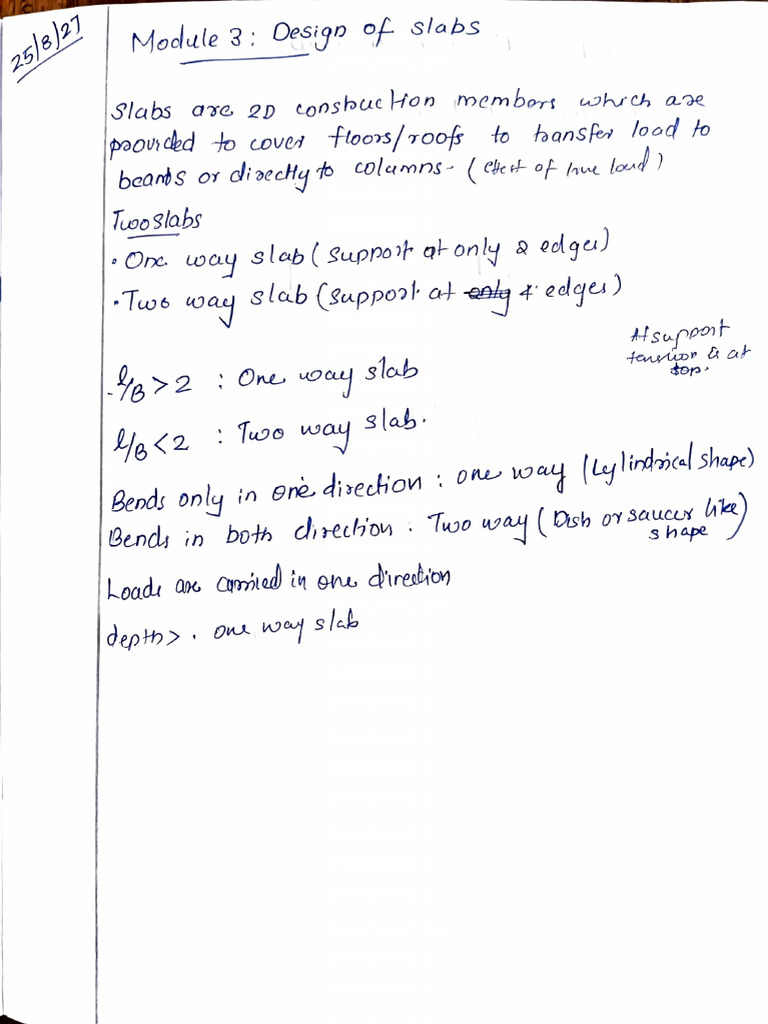 25/8/27
Module 3: Design of slabs
Slabs are 2D construction members which are
provided to cover floors/roofs to transfer load to
beams or directly to columns- (effect of live load)
Two slabs
• One way slab (support at only 2 edges)
• Two way slab (support at only 4 edges)
At support
tension is at
top.
l/B > 2 : One way slab
l/B < 2 : Two way slab.
Bends only in one direction : one way (Cylindrical shape)
Bends in both direction : Two way (Dish or saucer like
shape)
Loads are carried in one direction
depth > . one way slab